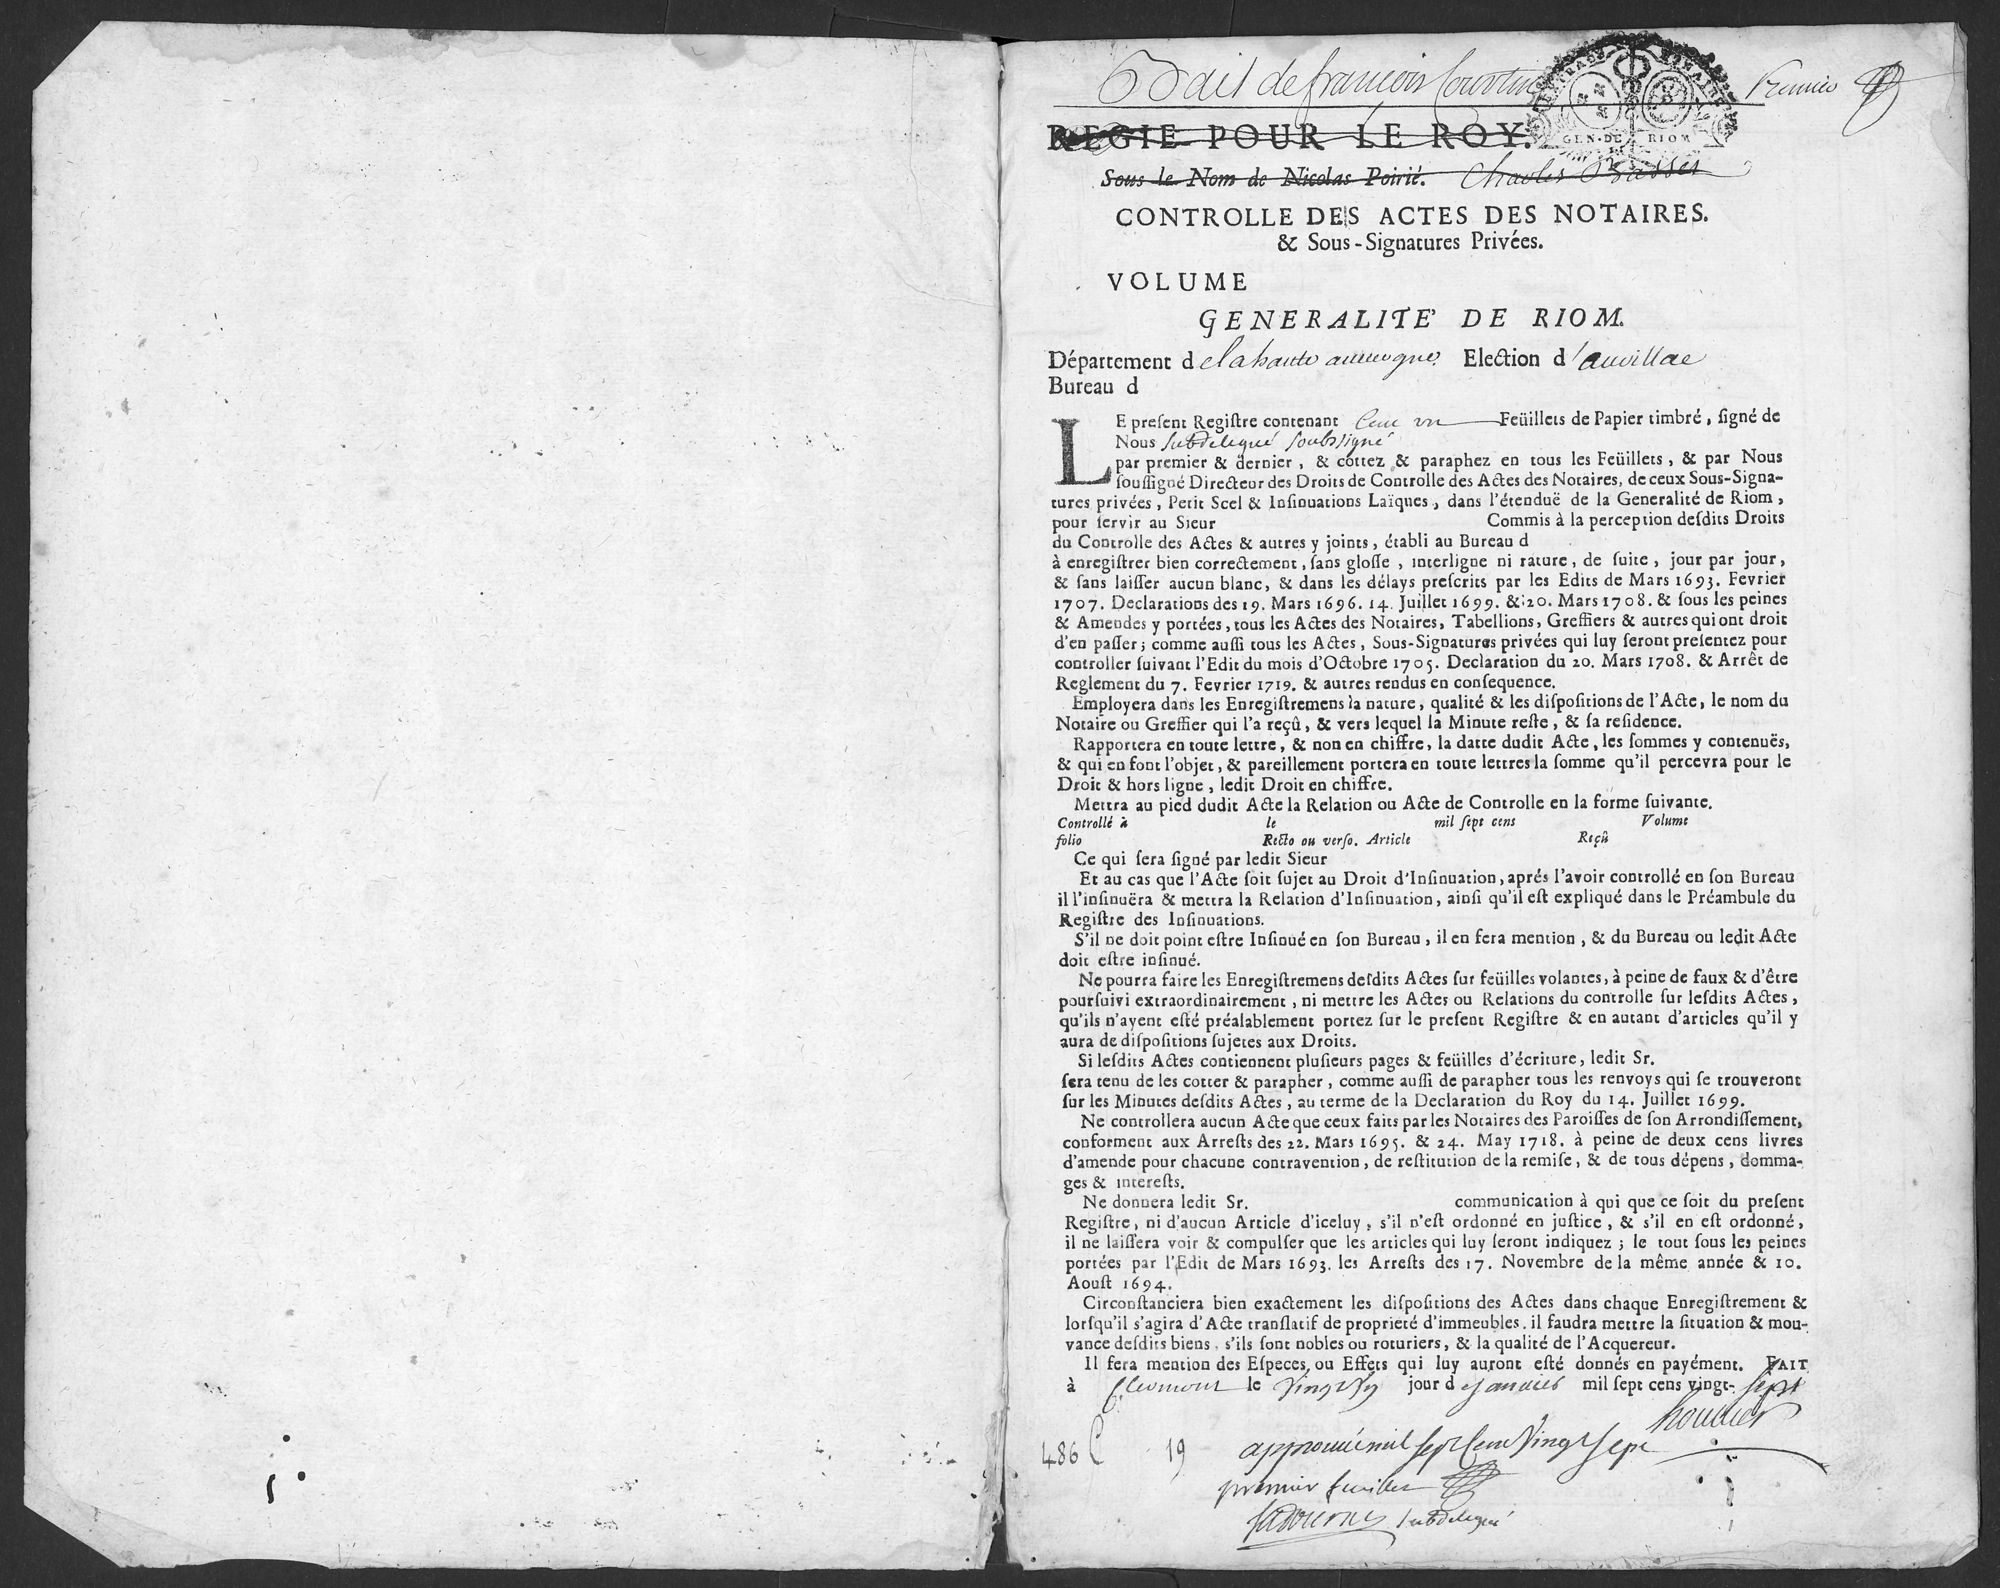 Bail de françois Premier
REGIE POUR LE ROY.
GEN. DE RIOM
Sous le Nom de Nicolas Poirié. Charles Basset
CONTROLLE DES ACTES DES NOTAIRES.
& Sous-Signatures Privées.
VOLUME
GENERALITE' DE RIOM.
Département de la haute auvergne. Election d'aurillac
Bureau d
LE preſent Regiſtre contenant Cent un Feüillets de Papier timbré, ſigné de
Nous subdelegué soubsigné
par premier & dernier, & cottez & paraphez en tous les Feüillets, & par Nous
ſouſſigné Directeur des Droits de Controlle des Actes des Notaires, de ceux Sous-Signa-
tures privées, Petit Scel & Inſinuations Laïques, dans l'étenduë de la Generalité de Riom,
pour ſervir au Sieur Commis à la perception deſdits Droits
du Controlle des Actes & autres y joints, établi au Bureau d
à enregiſtrer bien correctement, ſans gloſſe, interligne ni rature, de ſuite, jour par jour,
& ſans laiſſer aucun blanc, & dans les délays preſcrits par les Edits de Mars 1693. Fevrier
1707. Declarations des 19. Mars 1696. 14. Juillet 1699. & 20. Mars 1708. & ſous les peines
& Amendes y portées, tous les Actes des Notaires, Tabellions, Greffiers & autres qui ont droit
d'en paſſer; comme auſſi tous les Actes, Sous-Signatures privées qui luy ſeront preſentez pour
controller ſuivant l'Edit du mois d'Octobre 1705. Declaration du 20. Mars 1708. & Arrêt de
Reglement du 7. Fevrier 1719. & autres rendus en conſequence.
Employera dans les Enregiſtremens la nature, qualité & les diſpoſitions de l'Acte, le nom du
Notaire ou Greffier qui l'a reçû, & vers lequel la Minute reſte, & ſa reſidence.
Rapportera en toute lettre, & non en chiffre, la datte dudit Acte, les ſommes y contenuës,
& qui en font l'objet, & pareillement portera en toute lettres la ſomme qu'il percevra pour le
Droit & hors ligne, ledit Droit en chiffre.
Mettra au pied dudit Acte la Relation ou Acte de Controlle en la forme ſuivante.
Controllé à le mil ſept cens Volume
folio Recto ou verſo. Article Reçû
Ce qui ſera ſigné par ledit Sieur
Et au cas que l'Acte ſoit ſujet au Droit d'Inſinuation, aprés l'avoir controllé en ſon Bureau
il l'inſinuëra & mettra la Relation d'Inſinuation, ainſi qu'il eſt expliqué dans le Préambule du
Regiſtre des Inſinuations.
S'il ne doit point eſtre Inſinué en ſon Bureau, il en fera mention, & du Bureau ou ledit Acte
doit eſtre inſinué.
Ne pourra faire les Enregiſtremens deſdits Actes ſur feüilles volantes, à peine de faux & d'être
pourſuivi extraordinairement, ni mettre les Actes ou Relations du controlle ſur leſdits Actes,
qu'ils n'ayent eſté préalablement portez ſur le preſent Regiſtre & en autant d'articles qu'il y
aura de diſpoſitions ſujetes aux Droits.
Si leſdits Actes contiennent pluſieurs pages & feüilles d'écriture, ledit Sr.
ſera tenu de les cotter & parapher, comme auſſi de parapher tous les renvoys qui ſe trouveront
ſur les Minutes deſdits Actes, au terme de la Declaration du Roy du 14. Juillet 1699.
Ne controllera aucun Acte que ceux faits par les Notaires des Paroiſſes de ſon Arrondiſſement,
conforment aux Arreſts des 22. Mars 1695. & 24. May 1718. à peine de deux cens livres
d'amende pour chacune contravention, de reſtitution de la remiſe, & de tous dépens, domma-
ges & intereſts.
Ne donnera ledit Sr. communication à qui que ce ſoit du preſent
Regiſtre, ni d'aucun Article d'iceluy, s'il n'eſt ordonné en juſtice, & s'il en eſt ordonné,
il ne laiſſera voir & compulſer que les articles qui luy ſeront indiquez; le tout ſous les peines
portées par l'Edit de Mars 1693. les Arreſts des 17. Novembre de la même année & 10.
Aouſt 1694.
Circonſtanciera bien exactement les diſpoſitions des Actes dans chaque Enregiſtrement &
lorſqu'il s'agira d'Acte tranſlatif de proprieté d'immeubles, il faudra mettre la ſituation & mou-
vance deſdits biens, s'ils ſont nobles ou roturiers, & la qualité de l'Acquereur.
Il fera mention des Eſpeces, ou Effets qui luy auront eſté donnés en payément. FAIT
à Clermont le jour de Janvier mil ſept cens vingt-sept
486 C 19 approuvé mil sept Cent Vingt sept
premier feuillet
subdelegué